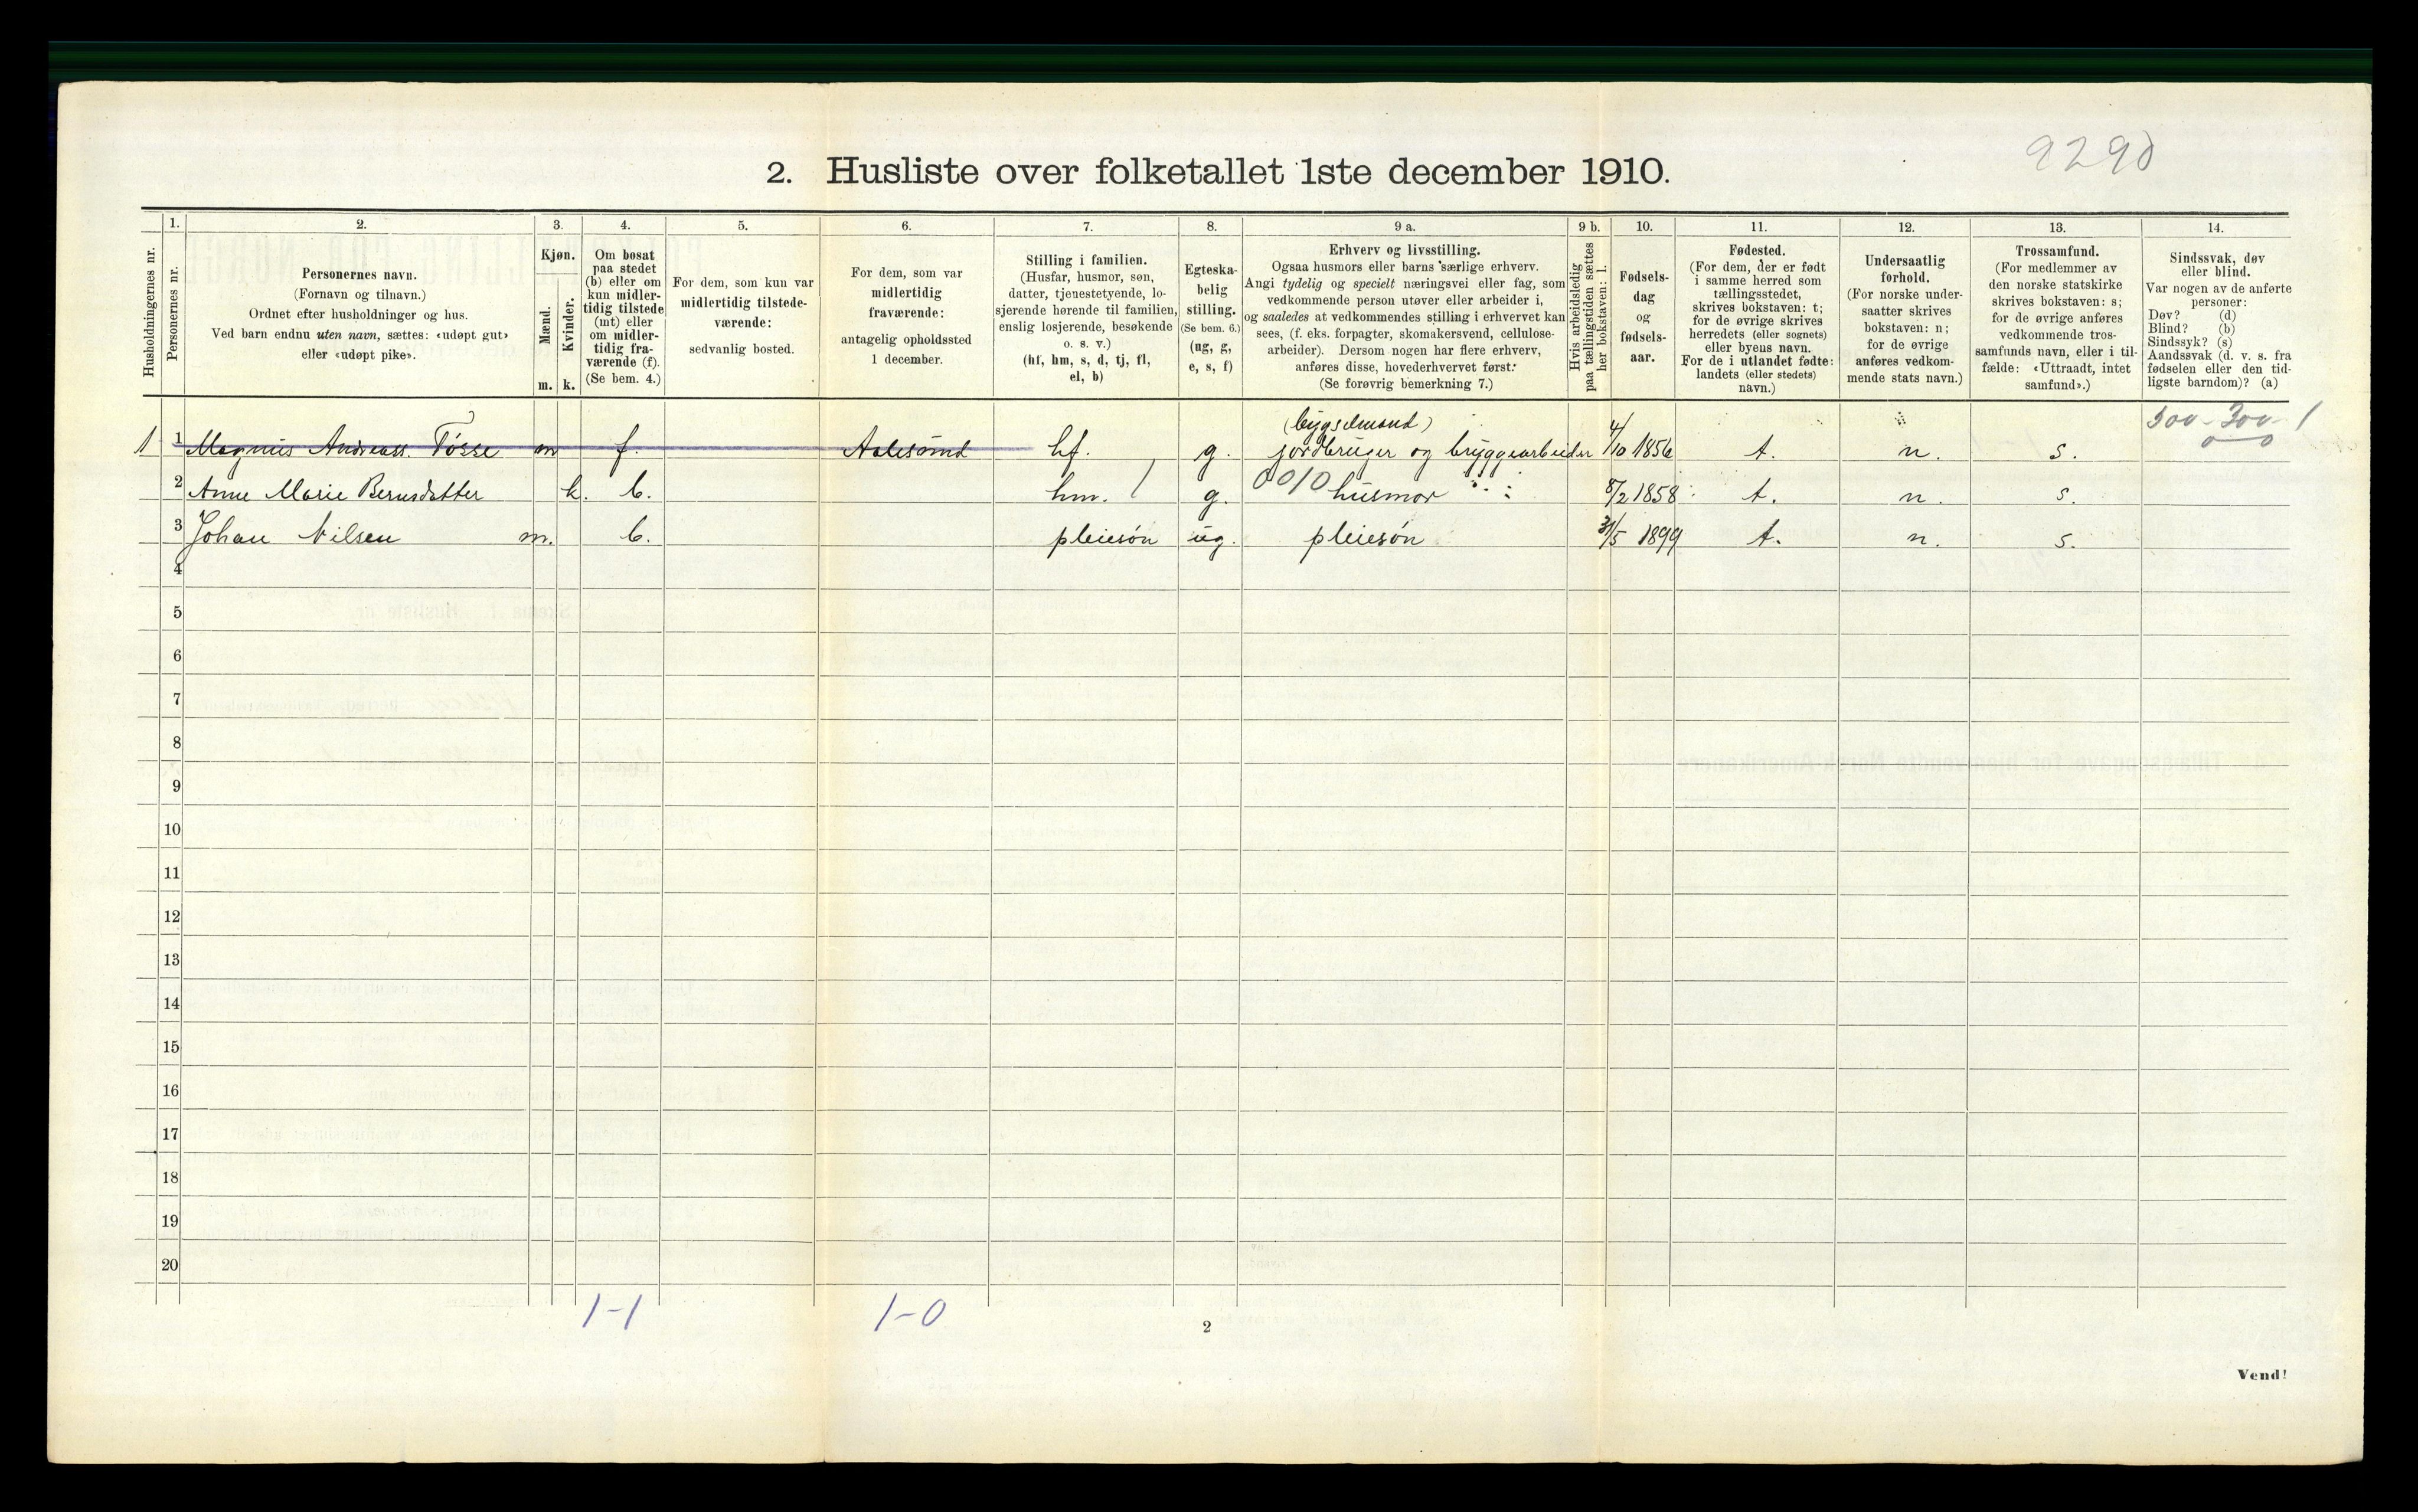 9290
2. Husliste over folketallet 1ste december 1910.
Husholdningernes nr.
1.
Personernes nr.
2.
Personernes navn.
(Fornavn og tilnavn.)
Ordnet efter husholdninger og hus.
Ved barn endnu uten navn, sættes: «udøpt gut»
eller «udøpt pike».
3.
Kjøn.
Mænd.
Kvinder.
m. k.
4.
Om bosat
paa stedet
(b) eller om
kun midler-
tidig tilstede
(mt) eller
om midler-
tidig fra-
værende (f).
(Se bem. 4.)
5.
For dem, som kun var
midlertidig tilstede-
værende:
sedvanlig bosted.
6.
For dem, som var
midlertidig
fraværende:
antagelig opholdssted
1 december.
7.
Stilling i familien.
(Husfar, husmor, søn,
datter, tjenestetyende, lo-
sjerende hørende til familien,
enslig losjerende, besøkende
o. s. v.)
(hf, hm, s, d, tj, fl,
el, b)
8.
Egteska-
belig
stilling.
(Se bem. 6.)
(ug, g,
e, s, f)
9 a.
Erhverv og livsstilling.
Ogsaa husmors eller barns særlige erhverv.
Angi tydelig og specielt næringsvei eller fag, som
vedkommende person utøver eller arbeider i,
og saaledes at vedkommendes stilling i erhvervet kan
sees, (f. eks. forpagter, skomakersvend, cellulose-
arbeider). Dersom nogen har flere erhverv,
anføres disse, hovederhvervet først.
(Se forøvrig bemerkning 7.)
9 b.
Hvis arbeidsledig
paa tællingstiden sættes
her bokstaven: l.
10.
Fødsels-
dag
og
fødsels-
aar.
11.
Fødested.
(For dem, der er født
i samme herred som
tællingsstedet,
skrives bokstaven: t;
for de øvrige skrives
herredets (eller sognets)
eller byens navn.
For de i utlandet fødte:
landets (eller stedets)
navn.)
12.
Undersaatlig
forhold.
(For norske under-
saatter skrives
bokstaven: n;
for de øvrige
anføres vedkom-
mende stats navn.)
13.
Trossamfund.
(For medlemmer av
den norske statskirke
skrives bokstaven: s;
for de øvrige anføres
vedkommende tros-
samfunds navn, eller i til-
fælde: «Uttraadt, intet
samfund».)
14.
Sindssvak, døv
eller blind.
Var nogen av de anførte
personer:
Døv? (d)
Blind? (b)
Sindssyk? (s)
Aandssvak (d. v. s. fra
fødselen eller den tid-
ligste barndom)? (a)
(bygselmand) 300-300-1
0-0
1 1 Magnus Andreass. Tösse m f. Aalesund hf. g. jordbruger og bryggearbeider 4/10 1856 t. n. s.
2 Anne Marie Bernsdatter k. b. hm. 1 g. 0010 husmor 8/2 1858 t. n. s.
3 Johan Nilsen m. b. pleiesøn ug. pleiesøn 31/5 1899 t. n. s.
4
5
6
7
8
9
10
11
12
13
14
15
16
17
18
19
20
1-1 1-0
2
Vend!